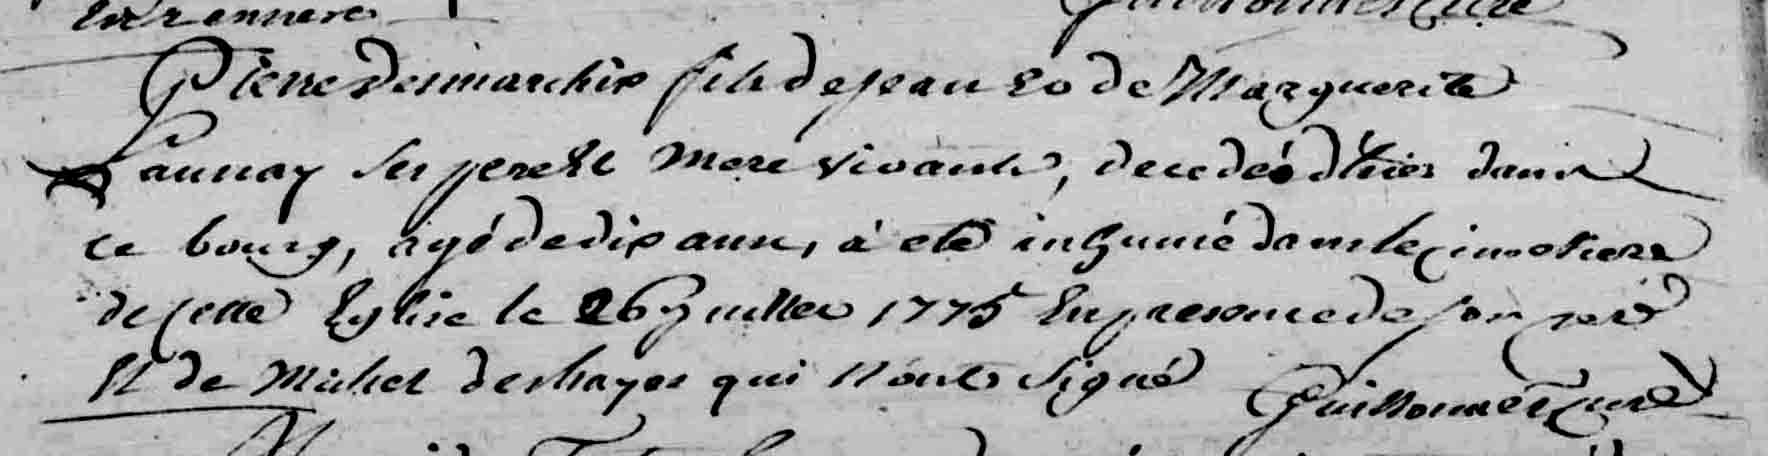 Pierre Desmarchix fils de Jean Eo de Marguerite
Launay ses pere Et Mere vivants, decedéé d'hier dans
ce bourg, agé de dix ans, à eté inhumé dans le cimetiere
de cette Eglise le 26 Juillet 1775 En presence de son pere
Et de Michel deshayes qui n'ont signé Guillonneés Curé